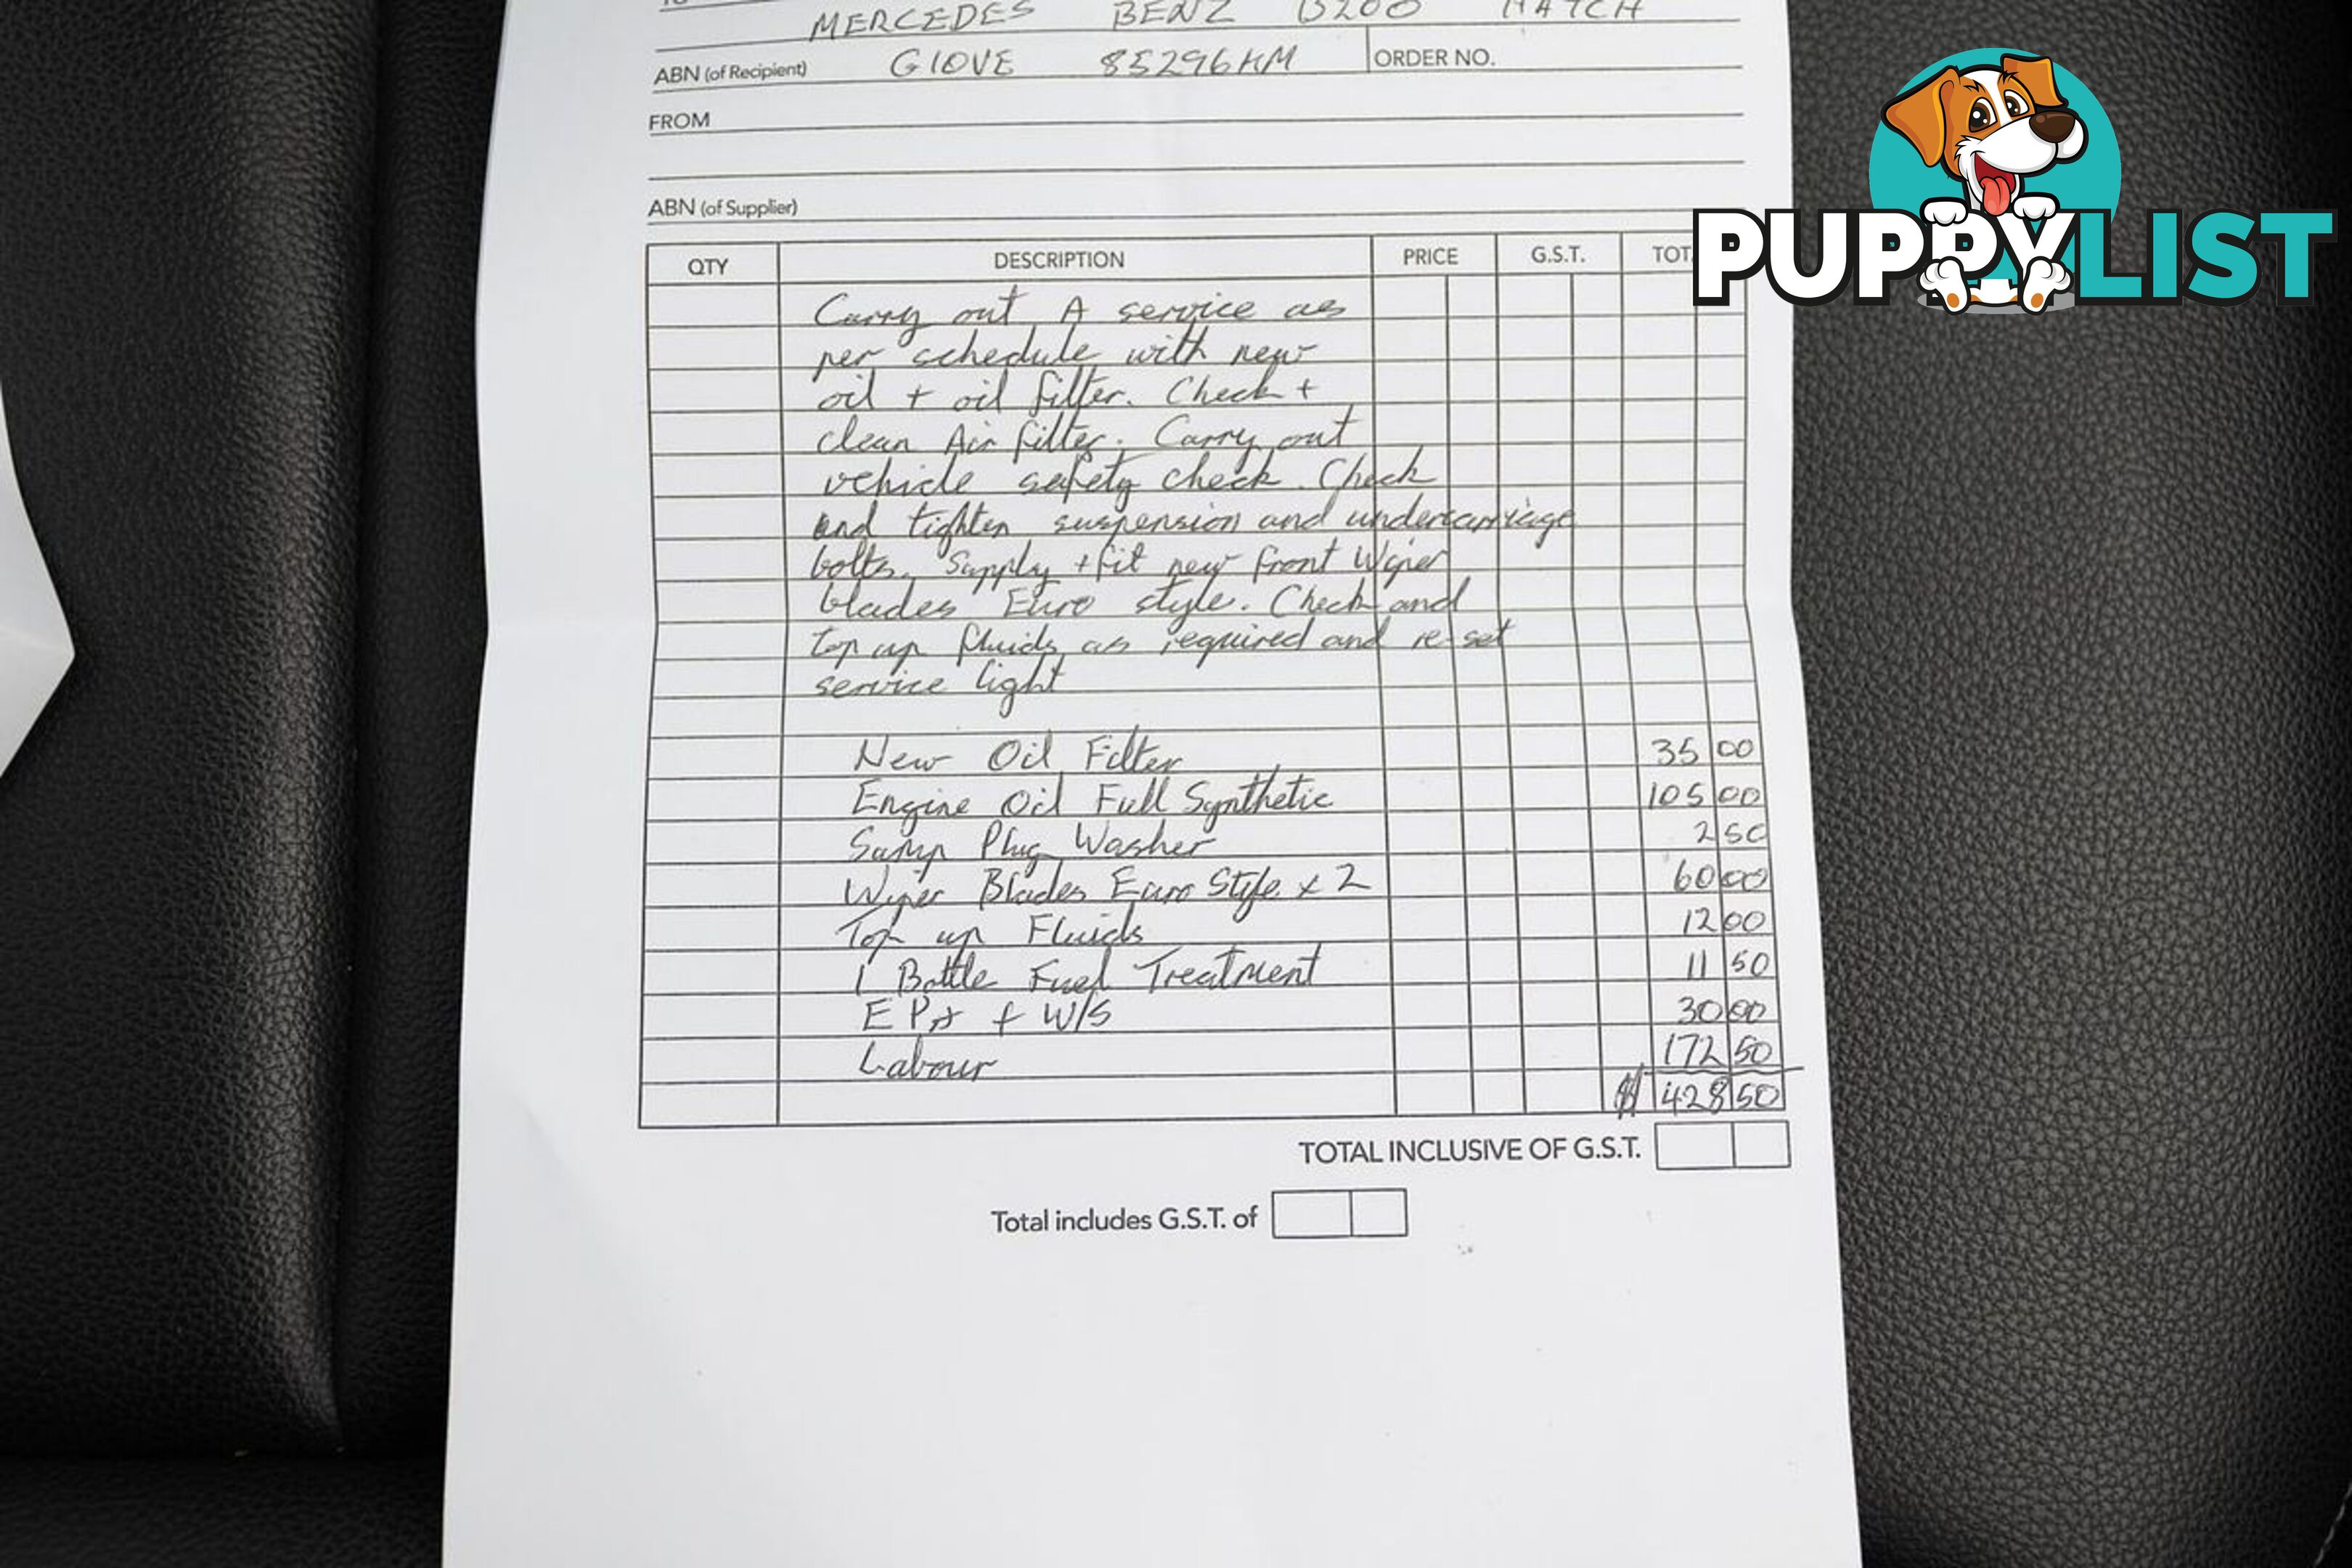 MERCEDES BENZ B200 HATCH
ABN (of Recipient) GIOVE 85296KM ORDER NO.
FROM
ABN (of Supplier)
QTY DESCRIPTION PRICE G.S.T. TOT
PUPPYLIST
Carry out A service as
per schedule with new
oil + oil filter. Check +
clean Air filter. Carry out
vehicle safety check. Check
and tighten suspension and undercarriage
bolts. Supply + fit new front Wiper
blades Euro style. Check and
top up fluids as required and re-set
service light
New Oil Filter 35 00
Engine Oil Full Synthetic 105 00
Sump Plug Washer 2 50
Wiper Blades Euro Style x 2 60 00
Top up Fluids 12 00
1 Bottle Fuel Treatment 11 50
EPA + W/S 30 00
Labour 172 50
$ 428 50
TOTAL INCLUSIVE OF G.S.T.
Total includes G.S.T. of